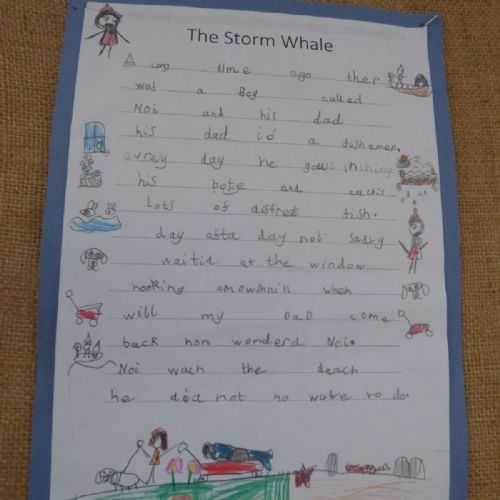 The Storm Whale
A long time ago ther
was a Boy called
Noi and his dad
his dad is a fishemen.
evrey day he gows fishing
his bote and cachis
Lots of diffret fish.
day afta day noi sadly
waitid at the window
hooking amowshnill when
will my DaD come
back hom wonderd Noi.
Noi wach the deach
he did not no wate to do.